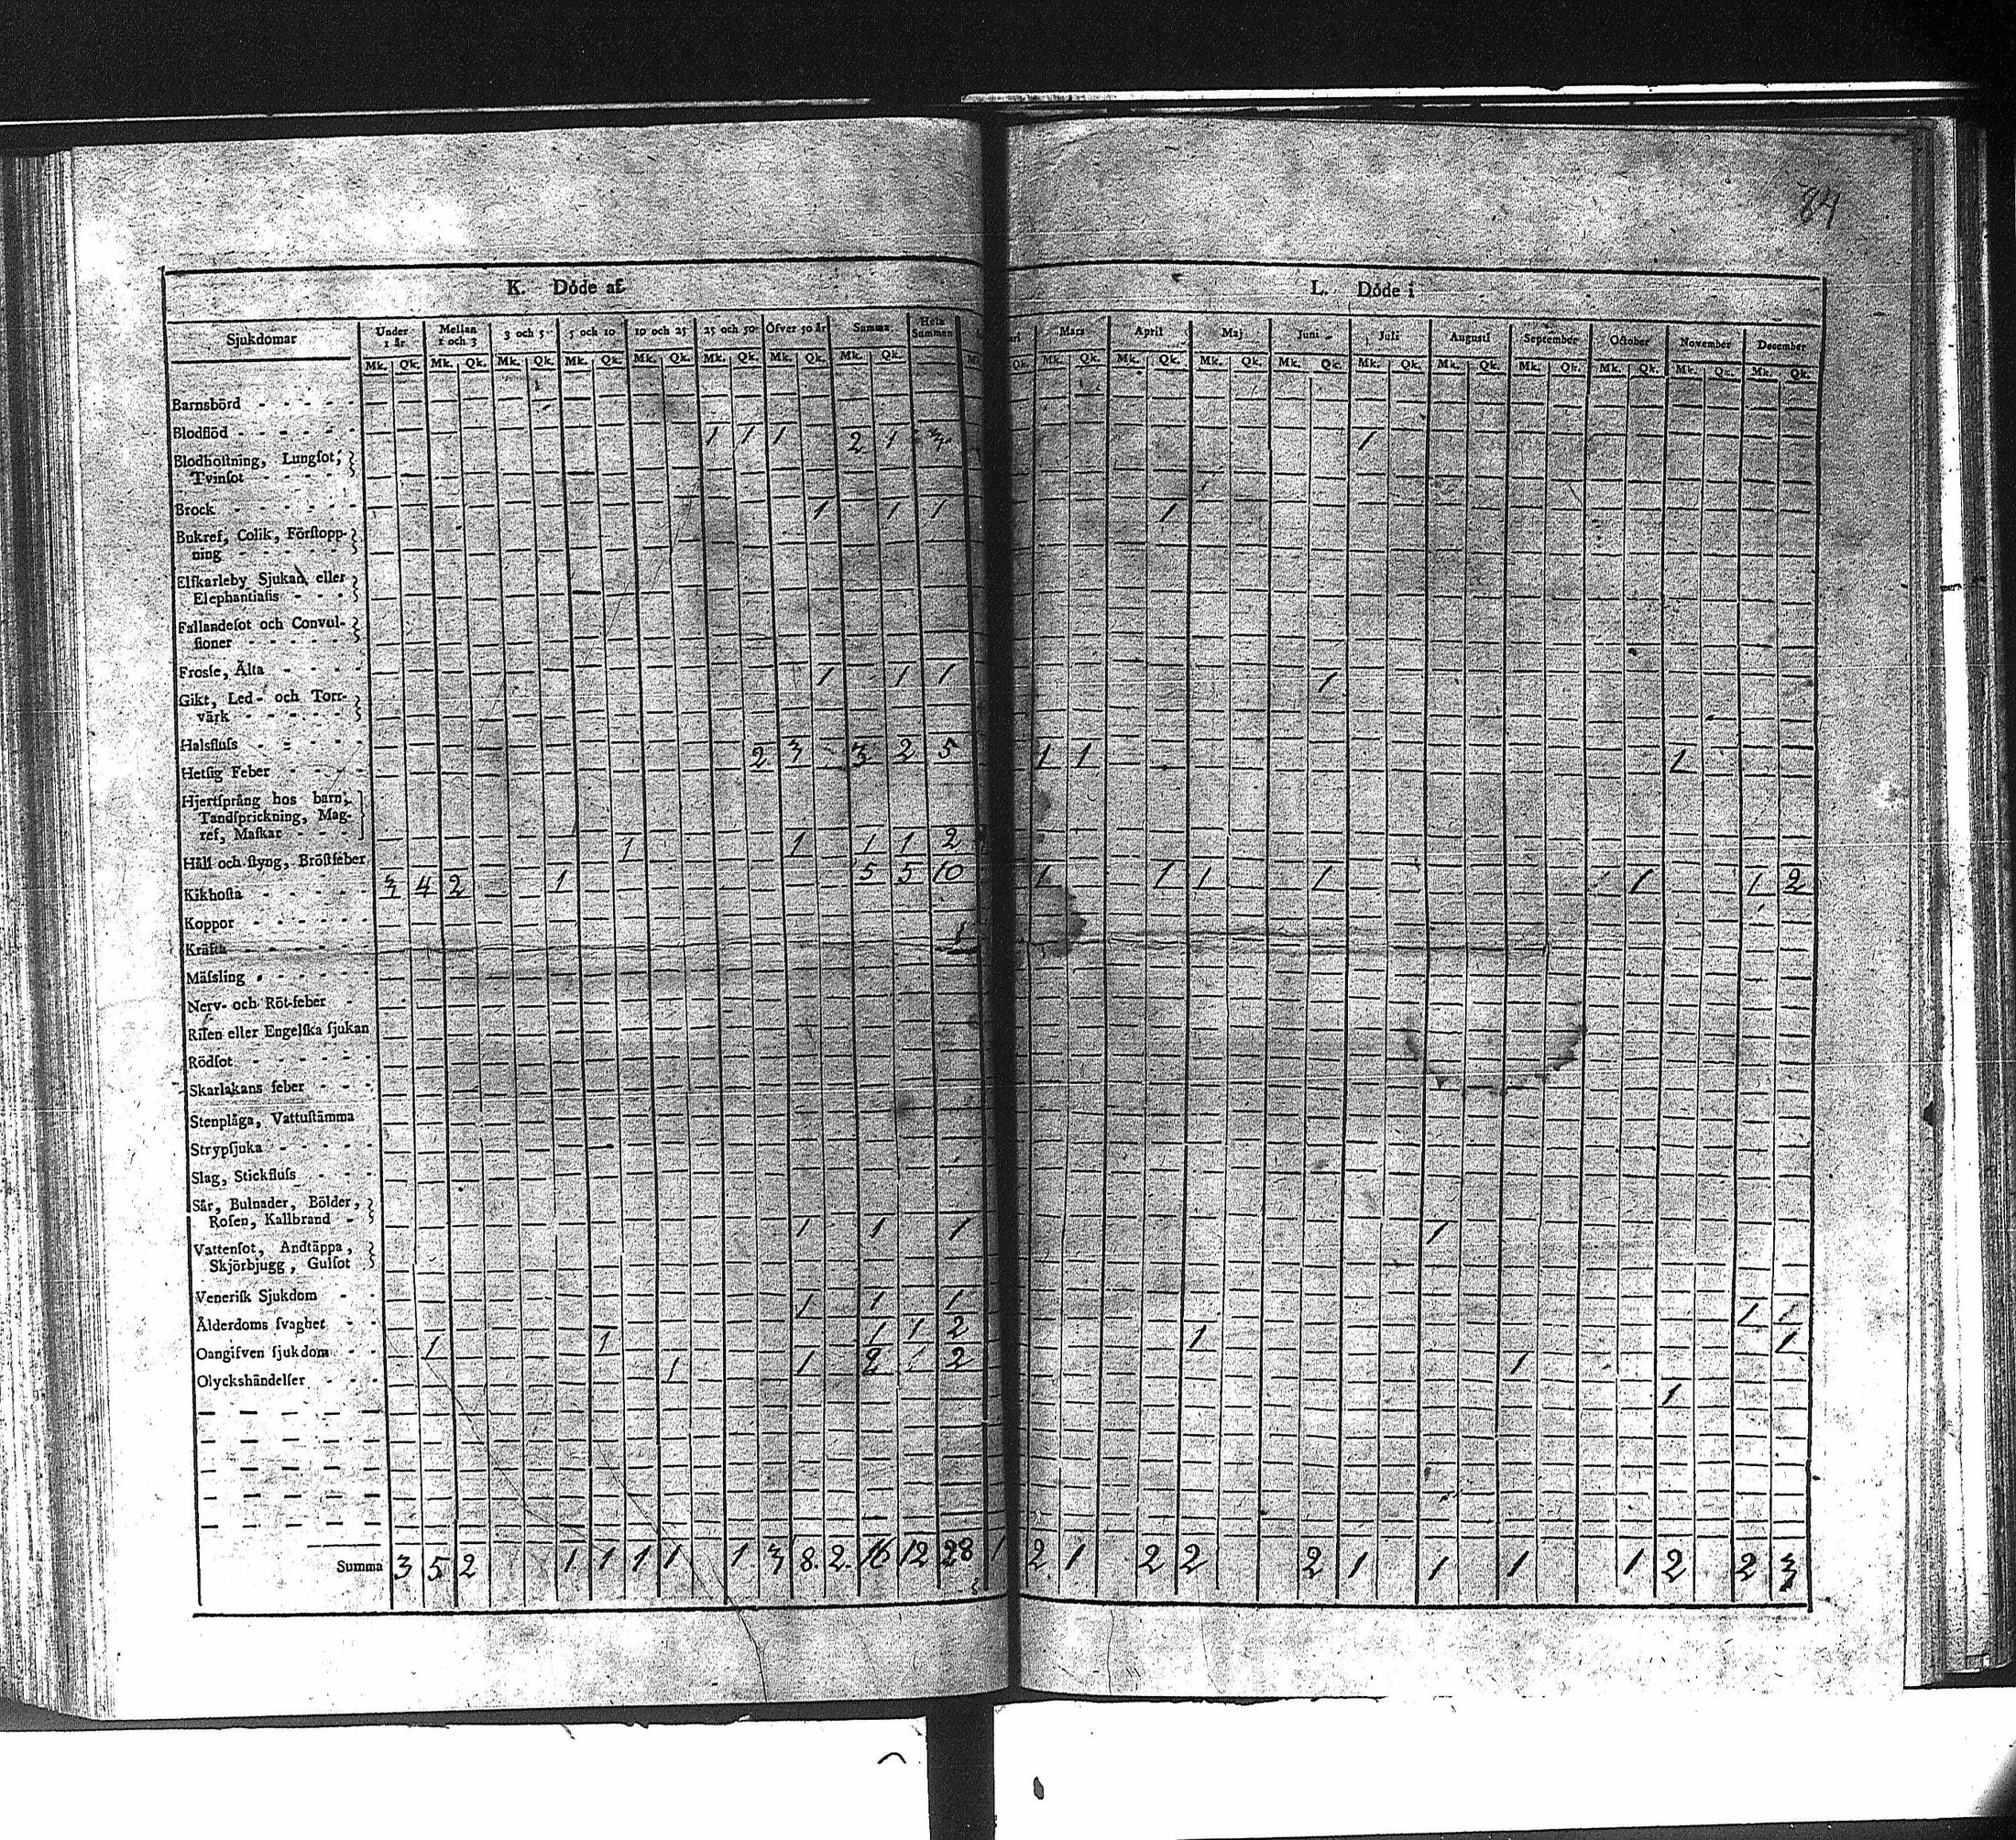 84
K. Döde af
Sjukdomar Under 1 år Mellan 1 och 3 3 och 5 5 och 10 10 och 25 25 och 50 Öfver 50 år Summa Hela Summan
Mk. Qk. Mk. Qk. Mk. Qk. Mk. Qk. Mk. Qk. Mk. Qk. Mk. Qk. Mk. Qk.
Barnsbörd
Blodflöd 1 1 1 2 1 3
Blodhoſtning, Lungſot,
Tvinſot
Brock 1 1 1
Bukref, Colik, Förſtopp-
ning
Elfkarleby Sjukan eller
Elephantiaſis
Fallandeſot och Convul-
ſioner
Frosſe, Älta 1 1 1
Gikt, Led- och Torr-
värk
Halsfluſs 2 3 3 2 5
Hetſig Feber
Hjertſprång hos barn,
Tandſprickning, Mag-
ref, Maſkar 1 1 1 1 2
Håll och ſtyng, Bröſtfeber 5 5 10
Kikhoſta 3 4 2 1
Koppor
Kräfta 1
Mäſsling
Nerv- och Röt-feber
Riſen eller Engelſka ſjukan
Rödſot
Skarlakans feber
Stenplåga, Vattuſtämma
Strypſjuka
Slag, Stickfluſs
Sår, Bulnader, Bölder,
Roſen, Kallbrand 1 1 1
Vattenſot, Andtäppa,
Skjörbjugg, Gulſot
Veneriſk Sjukdom 1 1 1
Ålderdoms ſvaghet 1 1 2
Oangifven ſjukdom 1 1 1 1 2 1 2
Olyckshändelſer
Summa 3 5 2 1 1 1 1 1 3 8 2 16 12 28 1
L. Döde i
Mars April Maj Juni Juli Auguſti September October November December
Qk. Mk. Qk. Mk. Qk. Mk. Qk. Mk. Qk. Mk. Qk. Mk. Qk. Mk. Qk. Mk. Qk. Mk. Qk. Mk. Qk.
1
1
1
1 1 1
1 1 1 1 1 1 2
1
1 1
1 1
1
1
2 1 2 2 2 1 1 1 1 2 2 3